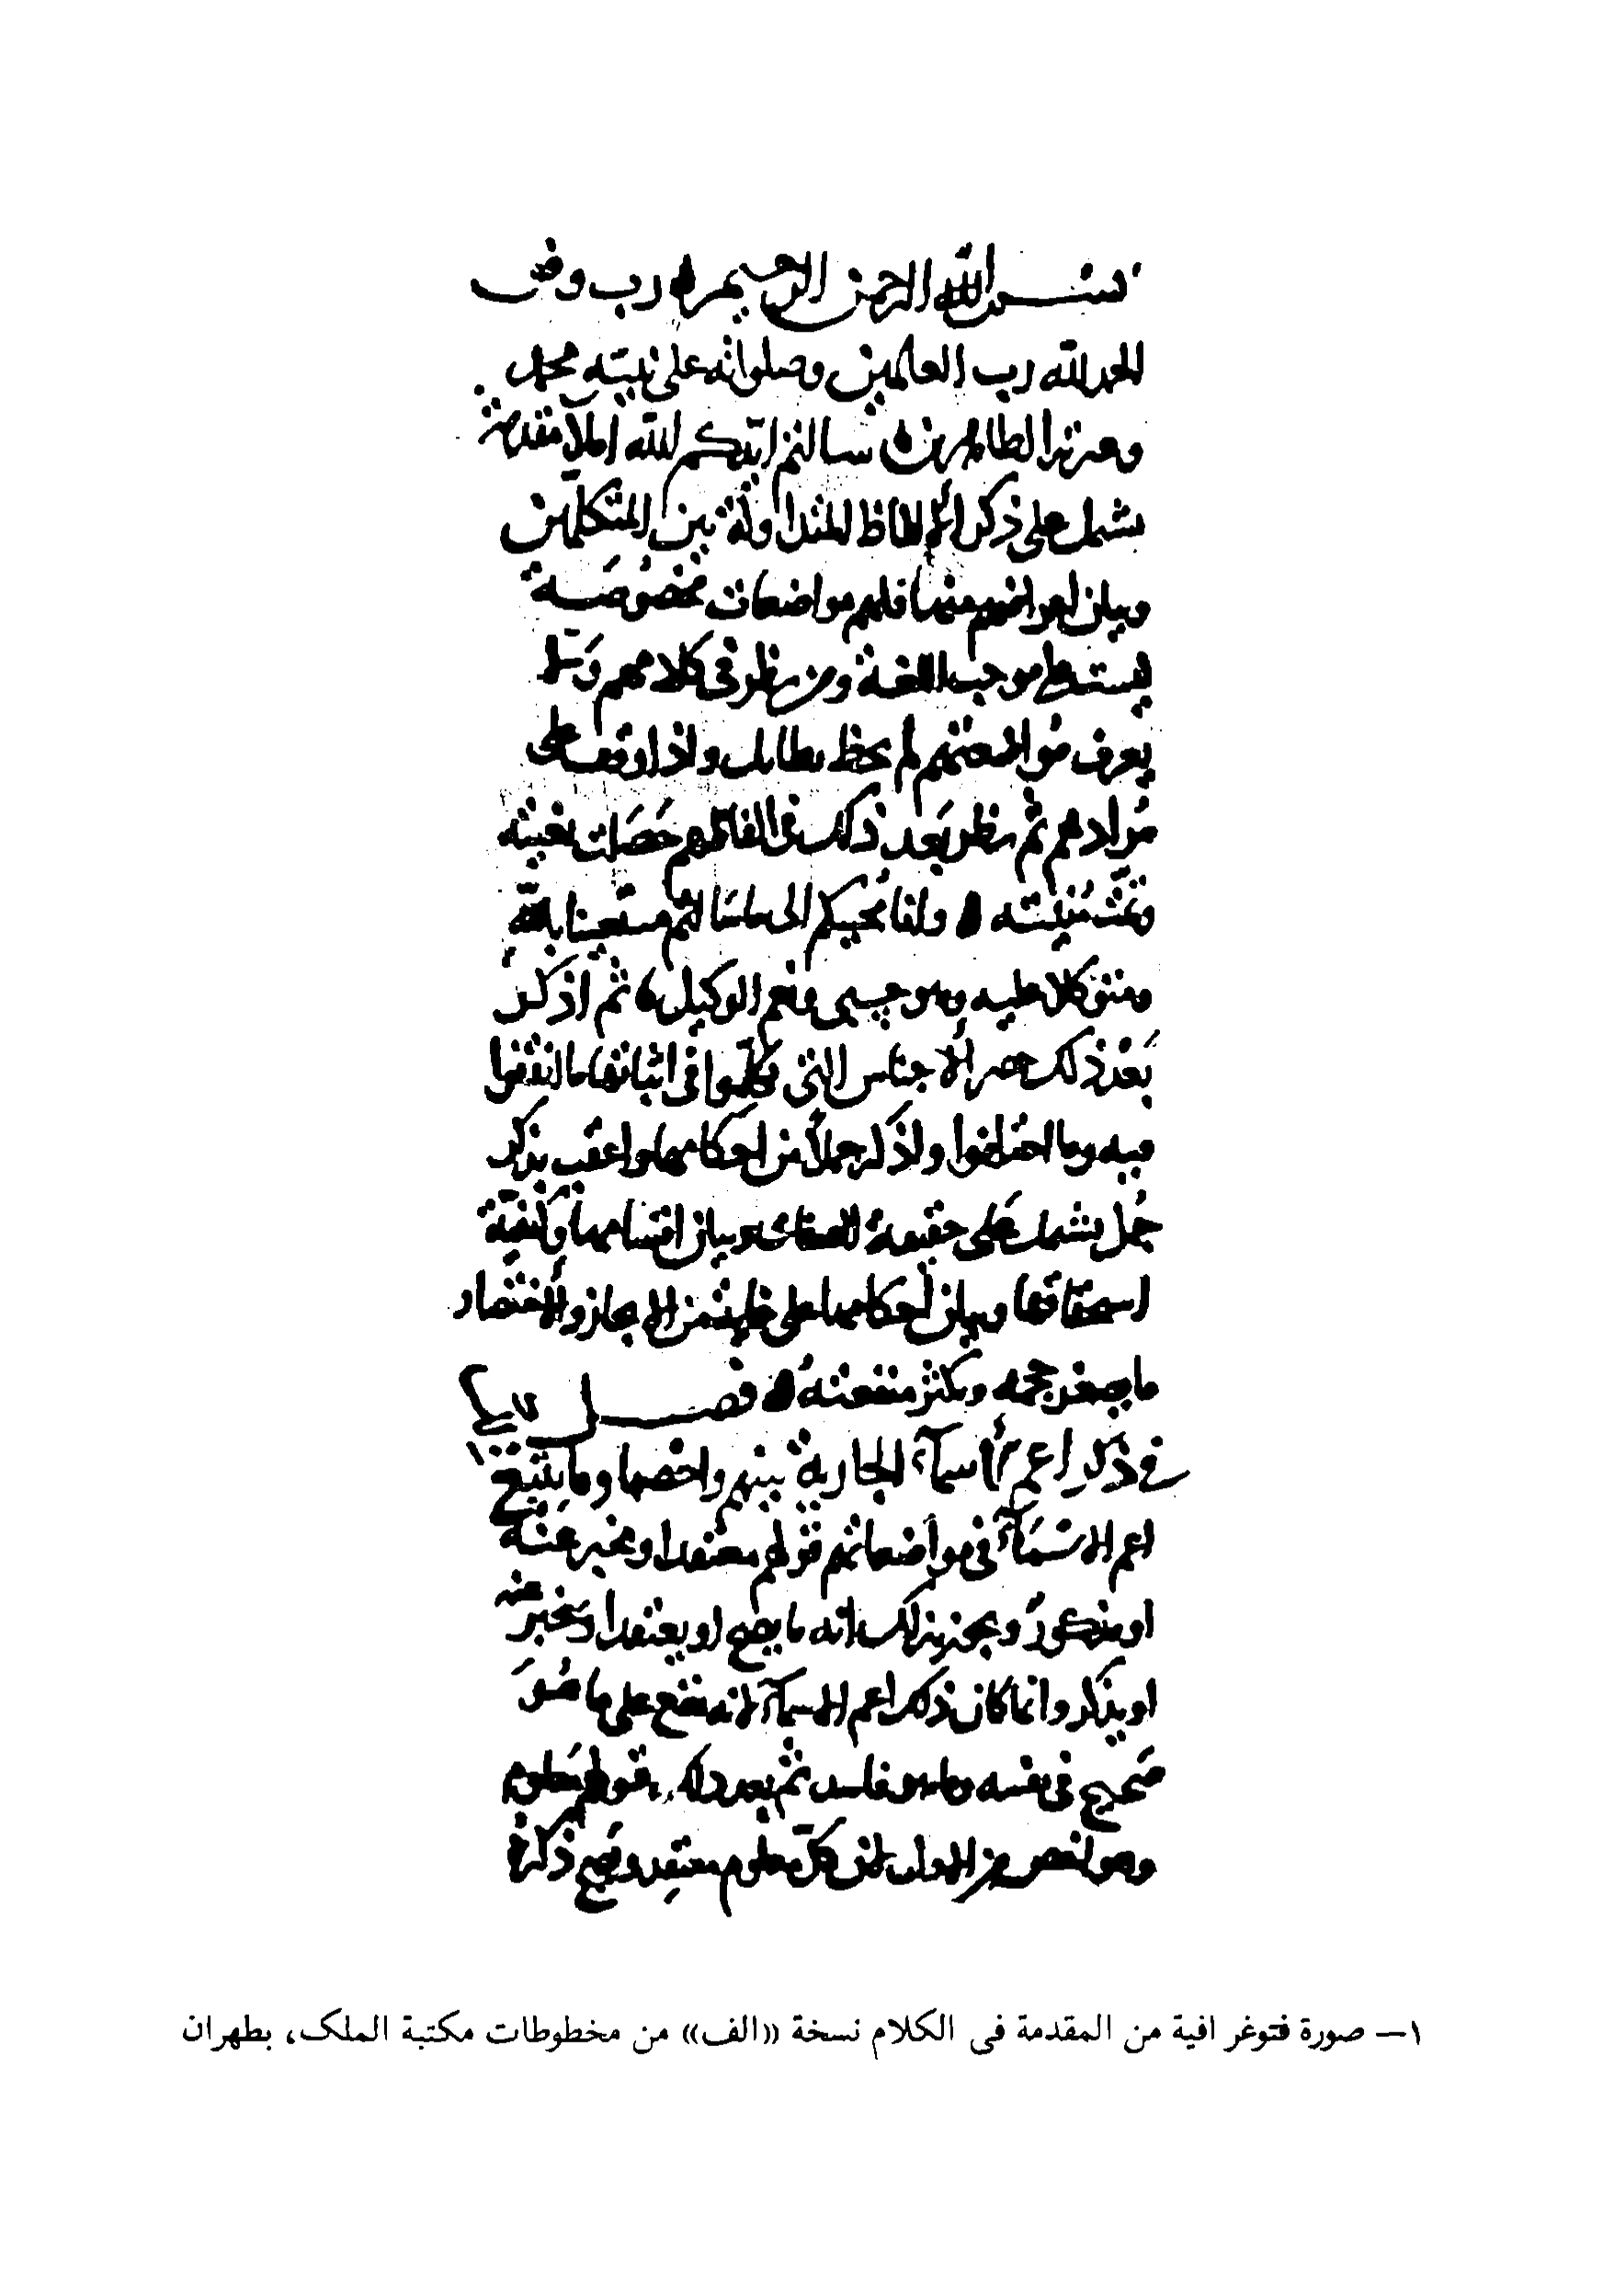 بسم الله الرحمن الرحيم رب وفق
الحمد لله رب العالمين وصلواته على نبيه محمد
وعترته الطاهرين سالتم ايدكم الله املآ مقدمة
تشمل على ذكر الالفاظ المتداولة بين المتكلمين
وبيان اغراضهم منها فلهم مواضعات مخصوصة
ليست على موجب اللغة ومن نظر في كلامهم ولا
يعرف مواضعتهم لم يحظ بطايل واذا وقف على
مرادهم ثم نظر بعد ذلك في الفاظهم حصلت بغيته
وتمت منيته وانا مجيبكم الى ما سالتم مستعينا بالله
ومتوكلا عليه وهو حسبي ونعم الوكيل ثم اذكر
بعد ذلك حصر الاجناس التي تكلموا في اثباتها ما اتفقوا
فيه وما اختلفوا واذكر جملا من احكامها واعقب بذكر
جمل تشمل على حقيقة الصفات وبيان اقسامها وكيفية
استحقاقها وبيان احكامها على غاية من الايجاز والاختصار
ما يصغر حجمه ويكثر منفعته فصل
في ذكر اعم الاسمآء الجارية بينهم واخصها وما يتبع
اعم الاسمآء في مواضعاتهم قولهم معتقد او مخبر عنه
او مذكور ونحن بذلك انه ما يصح ان يعتقد او يخبر عنه
او يذكر وانما كان ذلك اعم الاسمآء لانه يقع على ما هو
صحيح في نفسه وما هو فاسد ثم بعد ذلك قولهم معلوم
وهو اخص من الاول لان كل معلوم معتقد ويصح ذكره
١ـ صورة فتوغرافية من المقدمة في الكلام نسخة «الف» من مخطوطات مكتبة الملک، بطهران